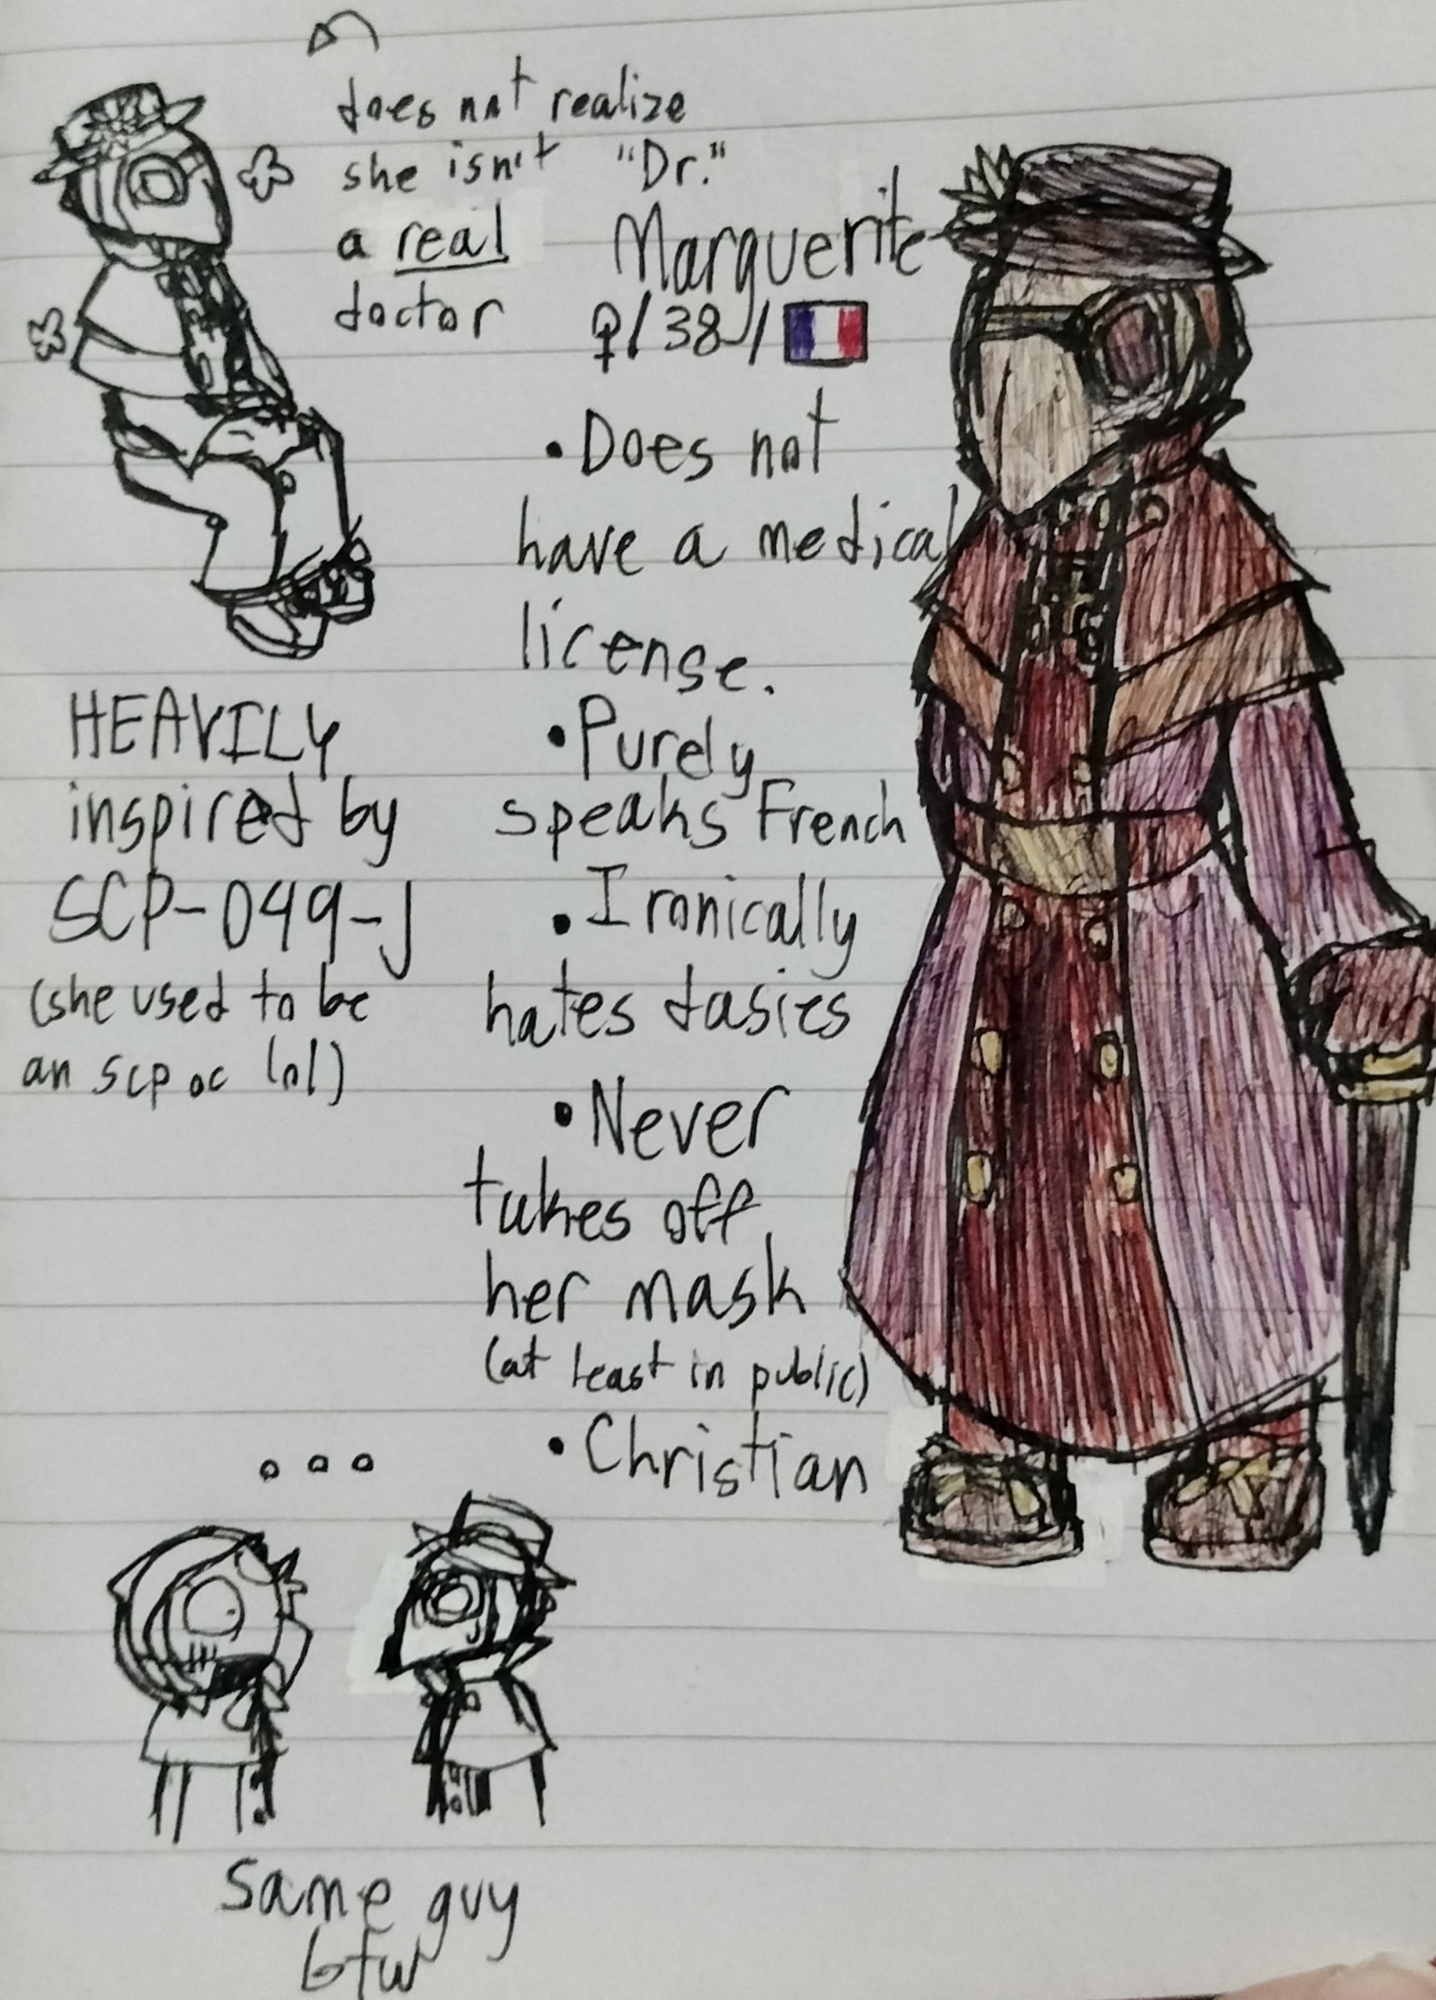 does not realize
she isn't
a real
doctor
"Dr."
Marguerite
♀/38/
• Does not
have a medical
license.
• Purely
speaks French
• Ironically
hates dasies
• Never
takes off
her mask
(at least in public)
• Christian
HEAVILY
inspired by
SCP-049-J
(she used to be
an scp oc lol)
...
same guy
btw